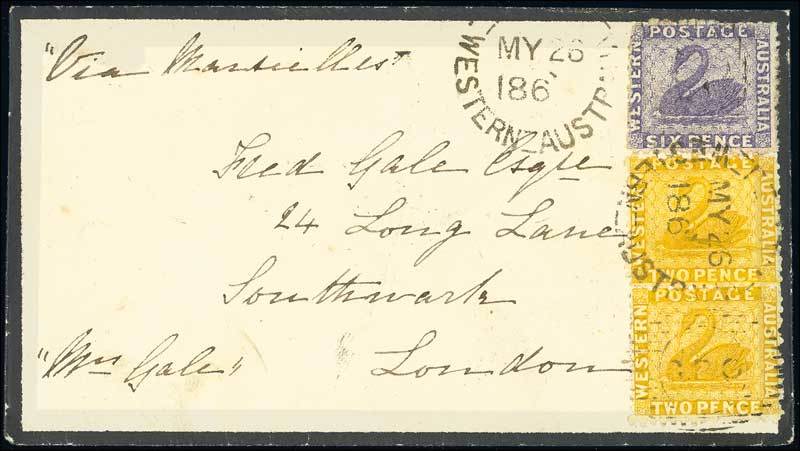 "Via Marseilles"
MY 26
186
WESTERN AUSTRALIA
POSTAGE
WESTERN
AUSTRALIA
SIX PENCE
Fred Gale Esqre
24 Long Lane
Southwark
London
"Mrs Gale"
MY 26
186
POSTAGE
WESTERN
AUSTRALIA
TWO PENCE
POSTAGE
WESTERN
AUSTRALIA
TWO PENCE